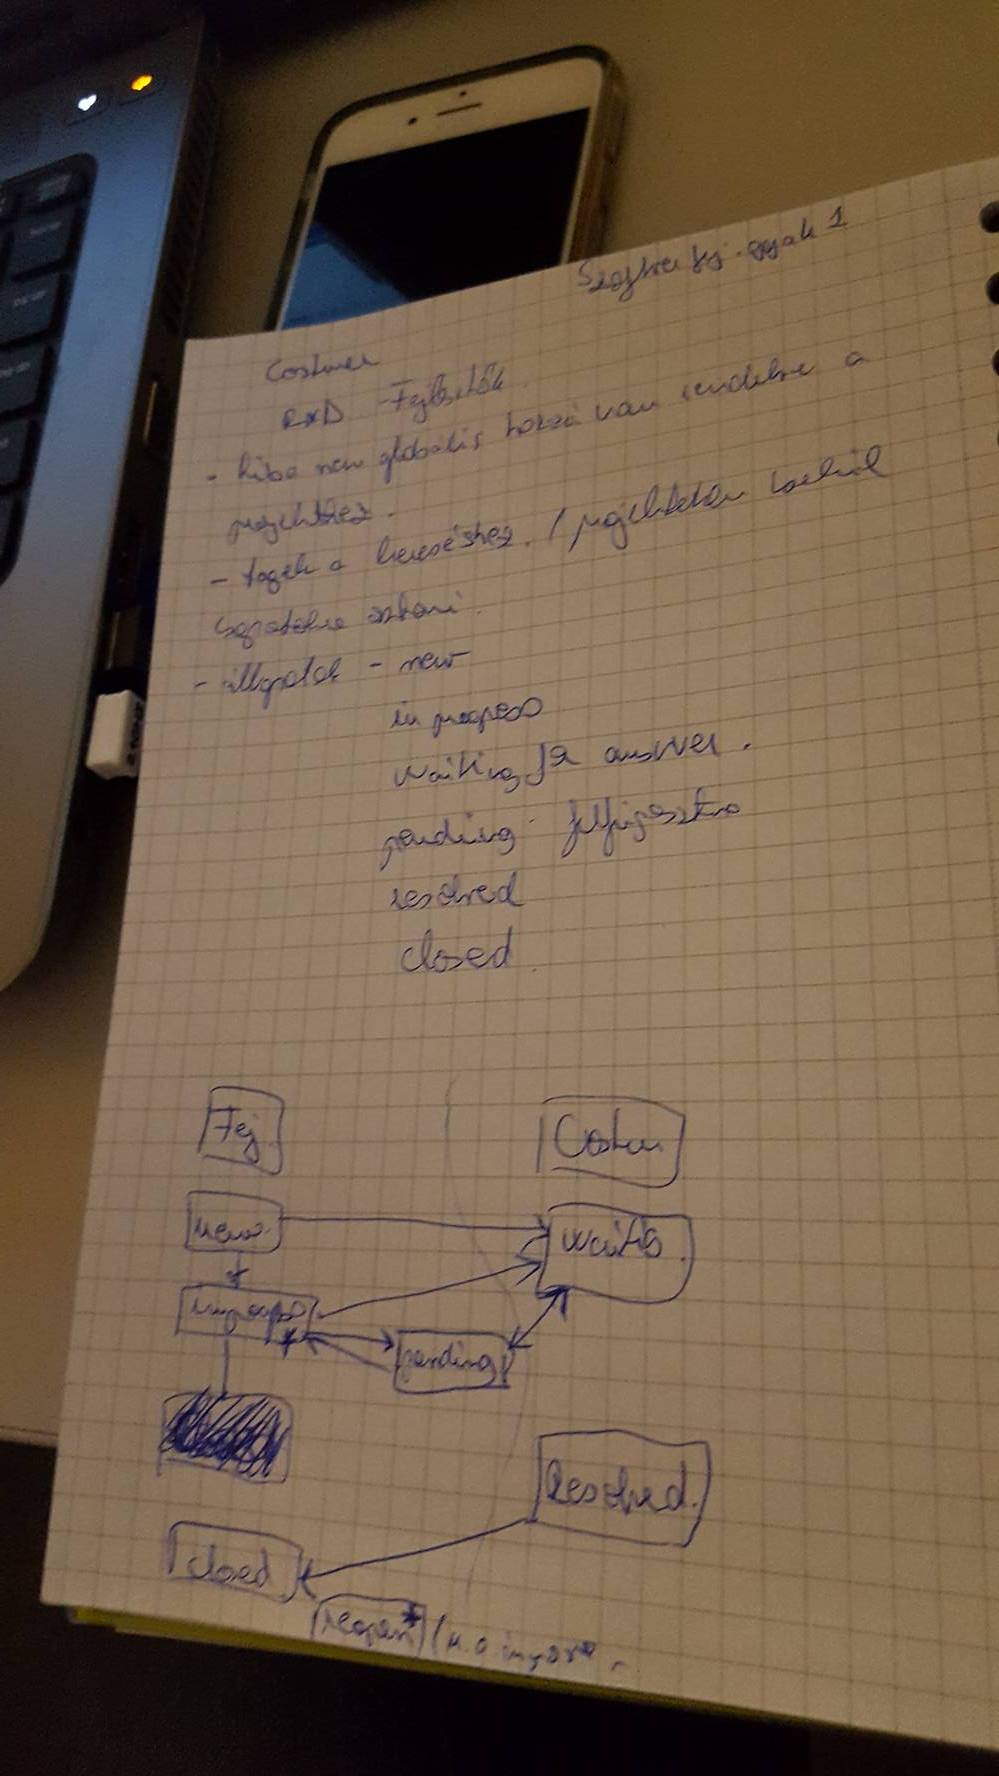 Szoftver fej. gyak 1
Costumer
R&D - Fejlesztők
- hiba nem globális hozzá van rendelve a
projekthez.
- tagek a kereséshez. / projekteken belül
állapotok - new
in progress
waiting for answer.
pending - felfüggesztve
resolved
closed.
Fej.
Costum
new.
waitig
inprogress
pending
Resolved.
closed
reopen*